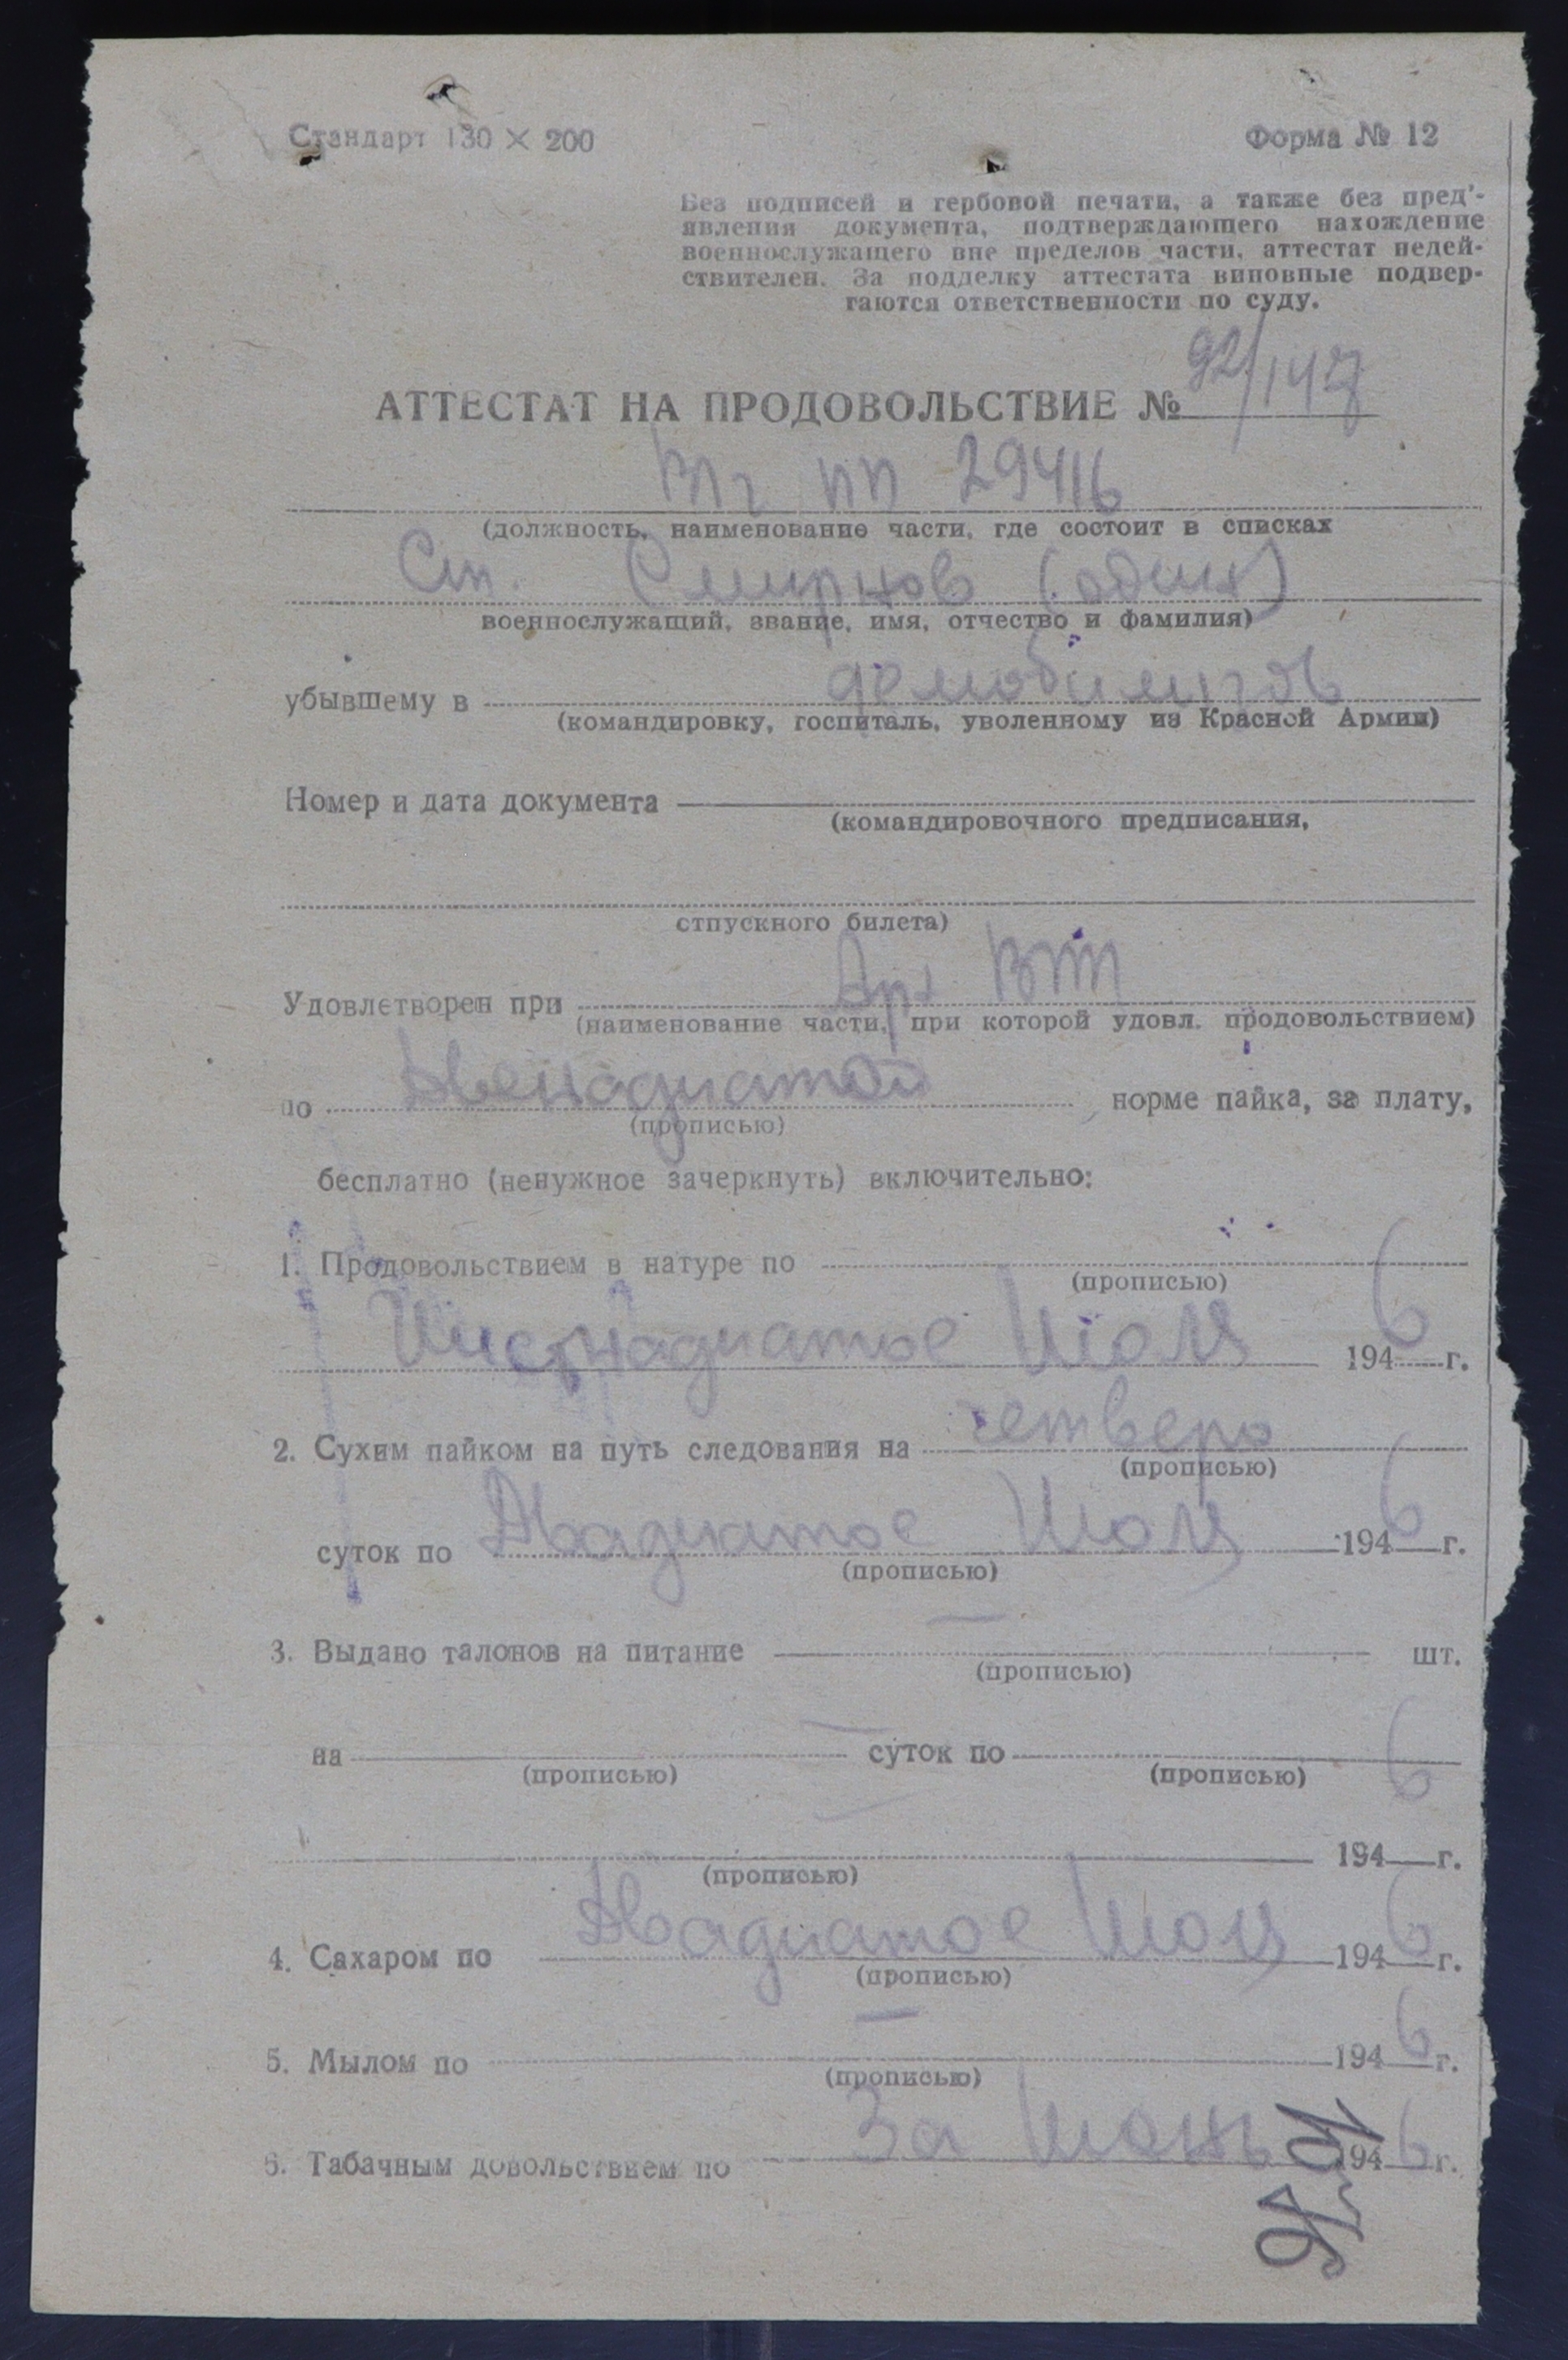 Стандарт 130 × 200
Форма № 12
Без подписей и гербовой печати, а также без пред'-
явления документа, подтверждающего нахождение
военнослужащего вне пределов части, аттестат недей-
ствителен. За подделку аттестата виновные подвер-
гаются ответственности по суду.
АТТЕСТАТ НА ПРОДОВОЛЬСТВИЕ № 92/147
пп 29416
(должность, наименование части, где состоит в списках
Смирнов (один)
военнослужащий, звание, имя, отчество и фамилия)
убывшему в демобилизов
(командировку, госпиталь, уволенному из Красной Армии)
Номер и дата документа
(командировочного предписания,
отпускного билета)
Удовлетворен при
(наименование части, при которой удовл. продовольствием)
по Двенадцатой норме пайка, за плату,
(прописью)
бесплатно (ненужное зачеркнуть) включительно:
1. Продовольствием в натуре по
(прописью)
Шестнадцатое Июля 1946 г.
2. Сухим пайком на путь следования на четверо
(прописью)
суток по Двадцатое Июля 1946 г.
(прописью)
3. Выдано талонов на питание — шт.
(прописью)
на — суток по
(прописью) (прописью)
6
— 194 г.
(прописью)
4. Сахаром по Двадцатое Июля 1946 г.
(прописью)
5. Мылом по — 1946 г.
(прописью)
6. Табачным довольствием по За Июнь 1946 г.